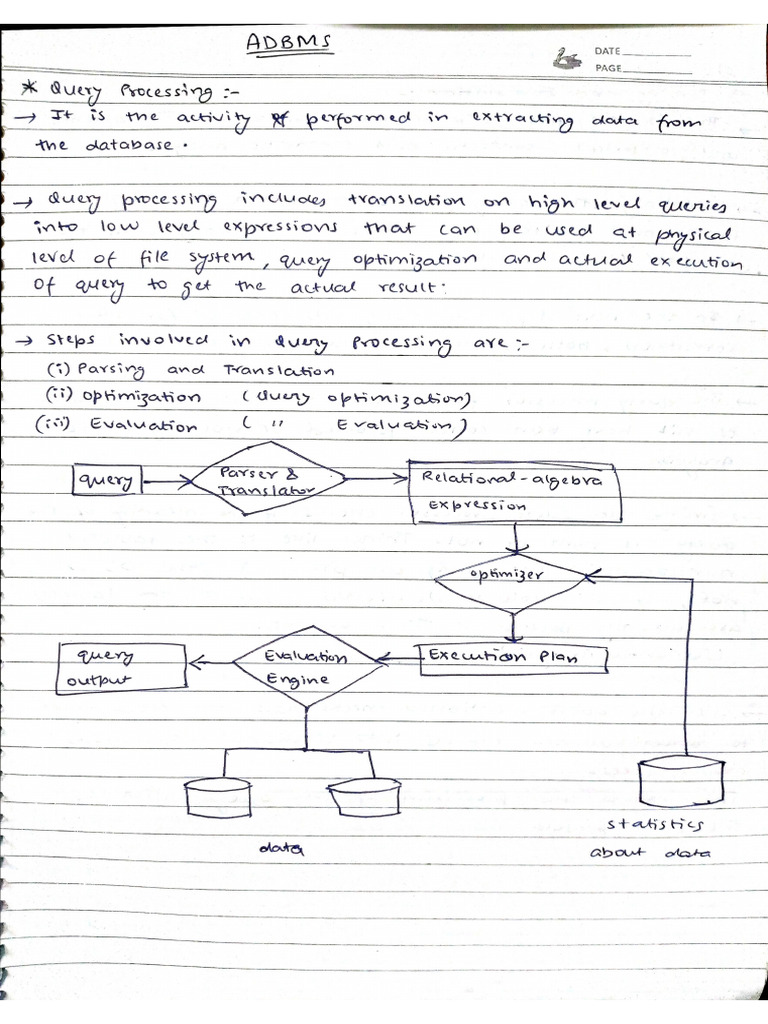 ADBMS
DATE
PAGE
* Query Processing :-
→ It is the activity performed in extracting data from
the database.
→ Query processing includes translation on high level queries
into low level expressions that can be used at physical
level of file system, query optimization and actual execution
of query to get the actual result.
→ Steps involved in Query Processing are :-
(i) Parsing and Translation
(ii) Optimization (Query optimization)
(iii) Evaluation ( " Evaluation)
query
Parser &
Translator
Relational-algebra
Expression
optimizer
query
output
Evaluation
Engine
Execution Plan
data
statistics
about data